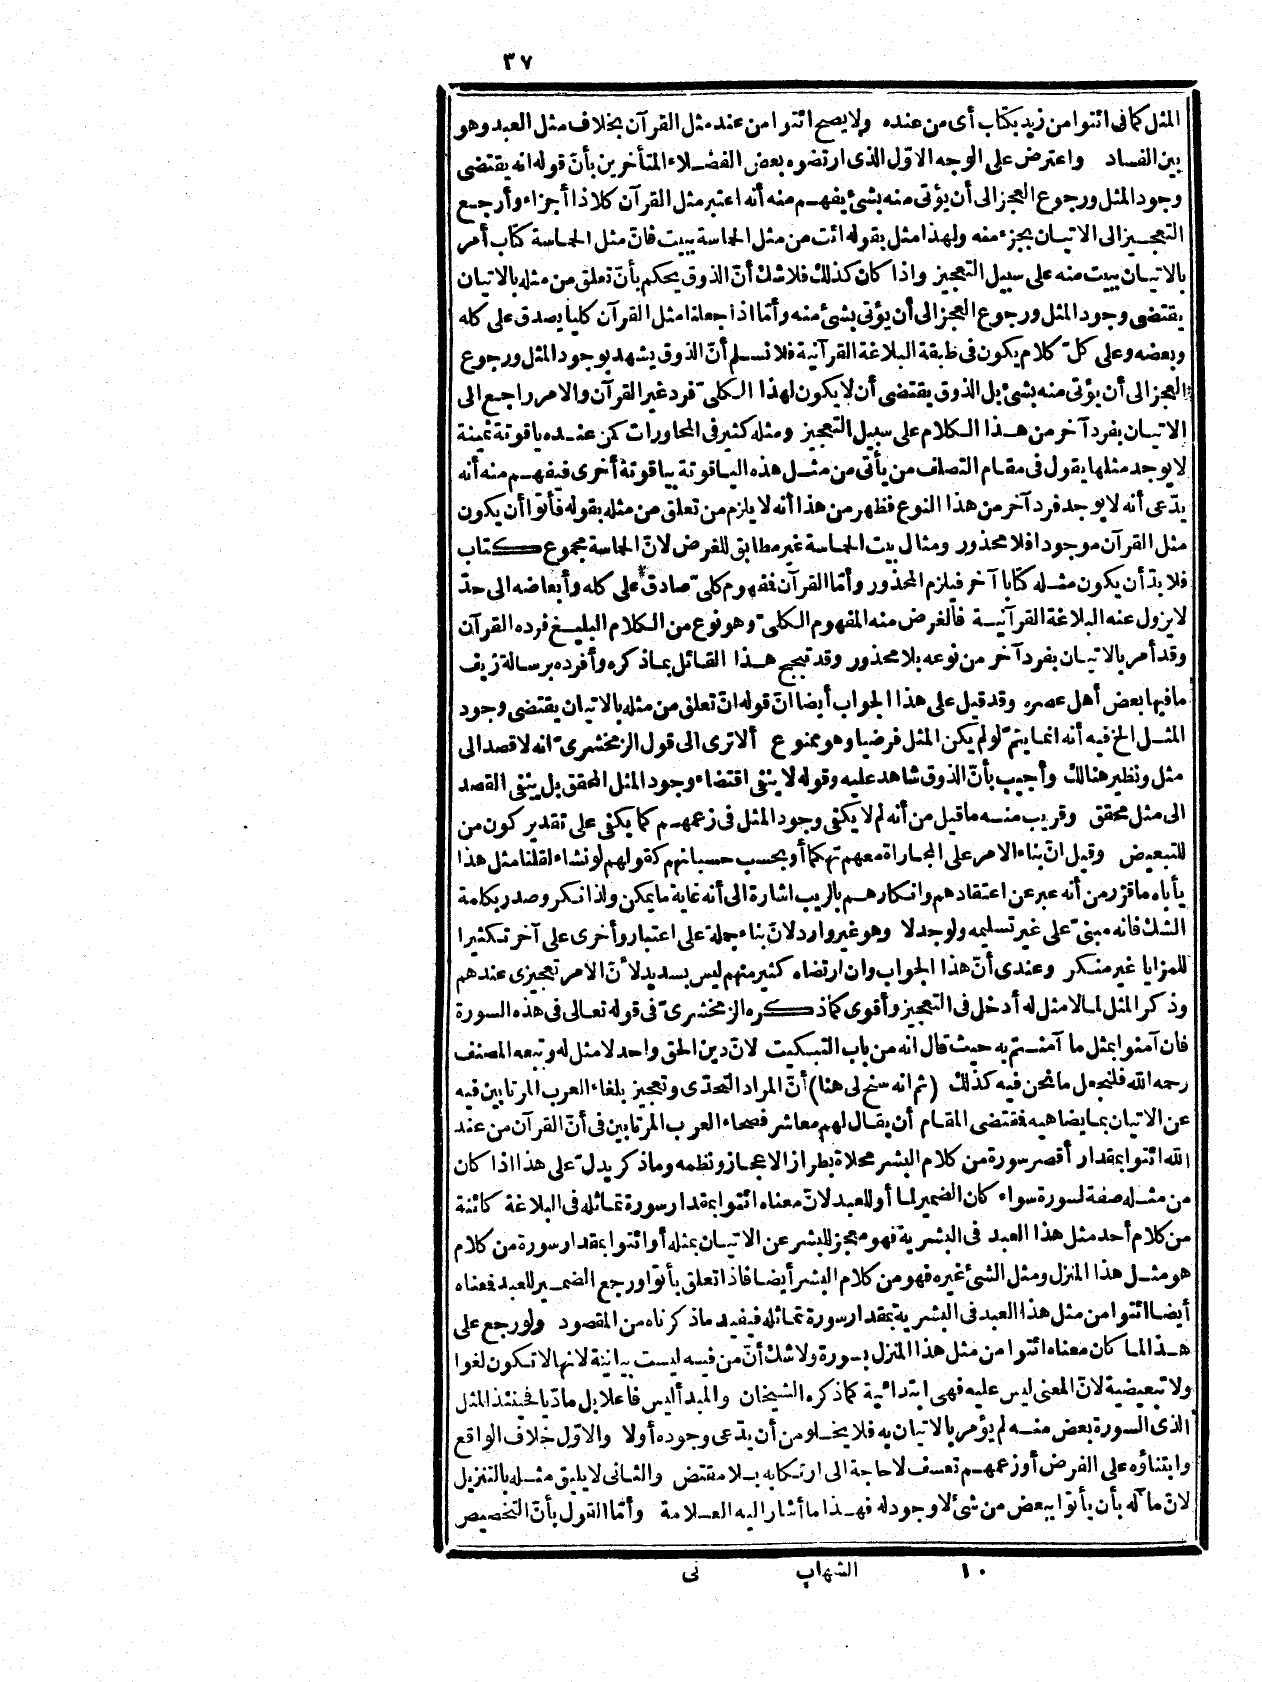 ٣٧
المثل كما فى ائتوا من زيد بكتاب أى من عنده ولا يصح ائتوا من عند مثل القرآن بخلاف مثل العبد وهو
بين الفساد واعترض على الوجه الاوّل الذى ارتضوه بعض الفضلاء المتأخرين بأنّ قوله انه يقتضى
وجود المثل ورجوع العجز الى أن يؤتى منه بشئ يفهم منه أنه اعتبر مثل القرآن كلا ذا أجزاء وأرجع
التعجيز الى الاتيان بجزء منه ولهذا مثل بقوله ائت من مثل الحماسة ببيت فانّ مثل الحماسة كتاب أمر
بالاتيان ببيت منه على سبيل التعجيز واذا كان كذلك فلا شك أنّ الذوق يحكم بأنّ تعلق من مثله بالاتيان
يقتضى وجود المثل ورجوع العجز الى أن يؤتى بشئ منه وأمّا اذا جعلنا مثل القرآن كليا يصدق على كله
وبعضه وعلى كلّ كلام يكون فى طبقة البلاغة القرآنية فلا نسلم أنّ الذوق يشهد بوجود المثل ورجوع
العجز الى أن يؤتى منه بشئ بل الذوق يقتضى أن لا يكون لهذا الكلىّ فرد غير القرآن والامر راجع الى
الاتيان بفرد آخر من هذا الكلام على سبيل التعجيز ومثله كثير فى المحاورات كمن عنده ياقوتة ثمينة
لا يوجد مثلها يقول فى مقام التصلف من يأتى من مثل هذه الياقوتة بياقوتة أخرى فيفهم منه أنه
يدّعى أنه لا يوجد فرد آخر من هذا النوع فظهر من هذا أنه لا يلزم من تعلق من مثله بقوله فأتوا أن يكون
مثل القرآن موجودا فلا محذور ومثال بيت الحماسة غير مطابق للغرض لانّ الحماسة مجموع كتاب
فلا بدّ أن يكون مثله كتابا آخر فيلزم المحذور وأمّا القرآن فمفهوم كلىّ صادق على كله وأبعاضه الى حدّ
لا يزول عنه البلاغة القرآنية فالغرض منه المفهوم الكلىّ وهو نوع من الكلام البليغ فرده القرآن
وقد أمر بالاتيان بفرد آخر من نوعه بلا محذور وقد تبجح هذا القائل بما ذكره وأفرده برسالة زيف
ما فيها بعض أهل عصره وقد قيل على هذا الجواب أيضا انّ قوله انّ تعلق من مثله بالاتيان يقتضى وجود
المثل الخ فيه أنه انما يتمّ لو لم يكن المثل فرضيا وهو ممنوع ألا ترى الى قول الزمخشرىّ انه لا قصد الى
مثل ونظير هنالك وأجيب بأنّ الذوق شاهد عليه وقوله لا ينفى اقتضاء وجود المثل المحقق بل ينفى القصد
الى مثل محقق وقريب منه ما قيل من أنه لم لا يكفى وجود المثل فى زعمهم كما يكفى على تقدير كون من
للتبعيض وقيل انّ بناء الامر على المجاراة معهم تهكما أو بحسب حسبانهم كقولهم لو نشاء لقلنا مثل هذا
يأباه ما قرّر من أنه عبر عن اعتقادهم وانكارهم بالريب اشارة الى أنه غاية ما يمكن ولذا نكر وصدر بكلمة
الشك فانه مبنىّ على غير تسليمه ولو جدلا وهو غير وارد لانّ بناء جملة على اعتبار وأخرى على آخر تكثيرا
للمزايا غير منكر وعندى أنّ هذا الجواب وان ارتضاه كثير منهم ليس بسديد لأنّ الامر تعجيزى عندهم
وذكر المثل لما لا مثل له أدخل فى التعجيز وأقوى كما ذكره الزمخشرىّ فى قوله تعالى فى هذه السورة
فان آمنوا بمثل ما آمنتم به حيث قال انه من باب التبكيت لانّ دين الحق واحد لا مثل له وتبعه المصنف
رحمه الله فلنجعل ما نحن فيه كذلك (ثم انه سنح لى هنا) أنّ المراد التحدّى وتعجيز بلغاء العرب المرتابين فيه
عن الاتيان بما يضاهيه فمقتضى المقام أن يقال لهم معاشر فصحاء العرب المرتابين فى أنّ القرآن من عند
الله ائتوا بمقدار أقصر سورة من كلام البشر محلاة بطراز الاعجاز ونظمه وما ذكر يدلّ على هذا اذا كان
من مثله صفة لسورة سواء كان الضمير لما أو للعبد لانّ معناه ائتوا بمقدار سورة تماثله فى البلاغة كائنة
من كلام أحد مثل هذا العبد فى البشرية فهو معجز للبشر عن الاتيان بمثله أو ائتوا بمقدار سورة من كلام
هو مثل هذا المنزل ومثل الشئ غيره فهو من كلام البشر أيضا فاذا تعلق بأتوا ورجع الضمير للعبد فمعناه
أيضا ائتوا من مثل هذا العبد فى البشرية بمقدار سورة تماثله فيفيد ما ذكرناه من المقصود ولو رجع على
هذا لما كان معناه ائتوا من مثل هذا المنزل بسورة ولا شك أنّ من فيه ليست بيانية لانها لا تكون لغوا
ولا تبعيضية لانّ المعنى ليس عليه فهى ابتدائية كما ذكره الشيخان والمبدأ ليس فاعلا بل مادّيا فحينئذ المثل
الذى السورة بعض منه لم يؤمر بالاتيان به فلا يخلو من أن يدّعى وجوده أولا والاوّل خلاف الواقع
وابتناؤه على الفرض أو زعمهم تعسف لا حاجة الى ارتكابه بلا مقتض والثانى لا يليق مثله بالتنزيل
لانّ مآله بأن يأتوا ببعض من شئ لا وجود له فهذا ما أشار اليه العلامة وأمّا القول بأنّ التخصيص
١٠ الشهاب نى